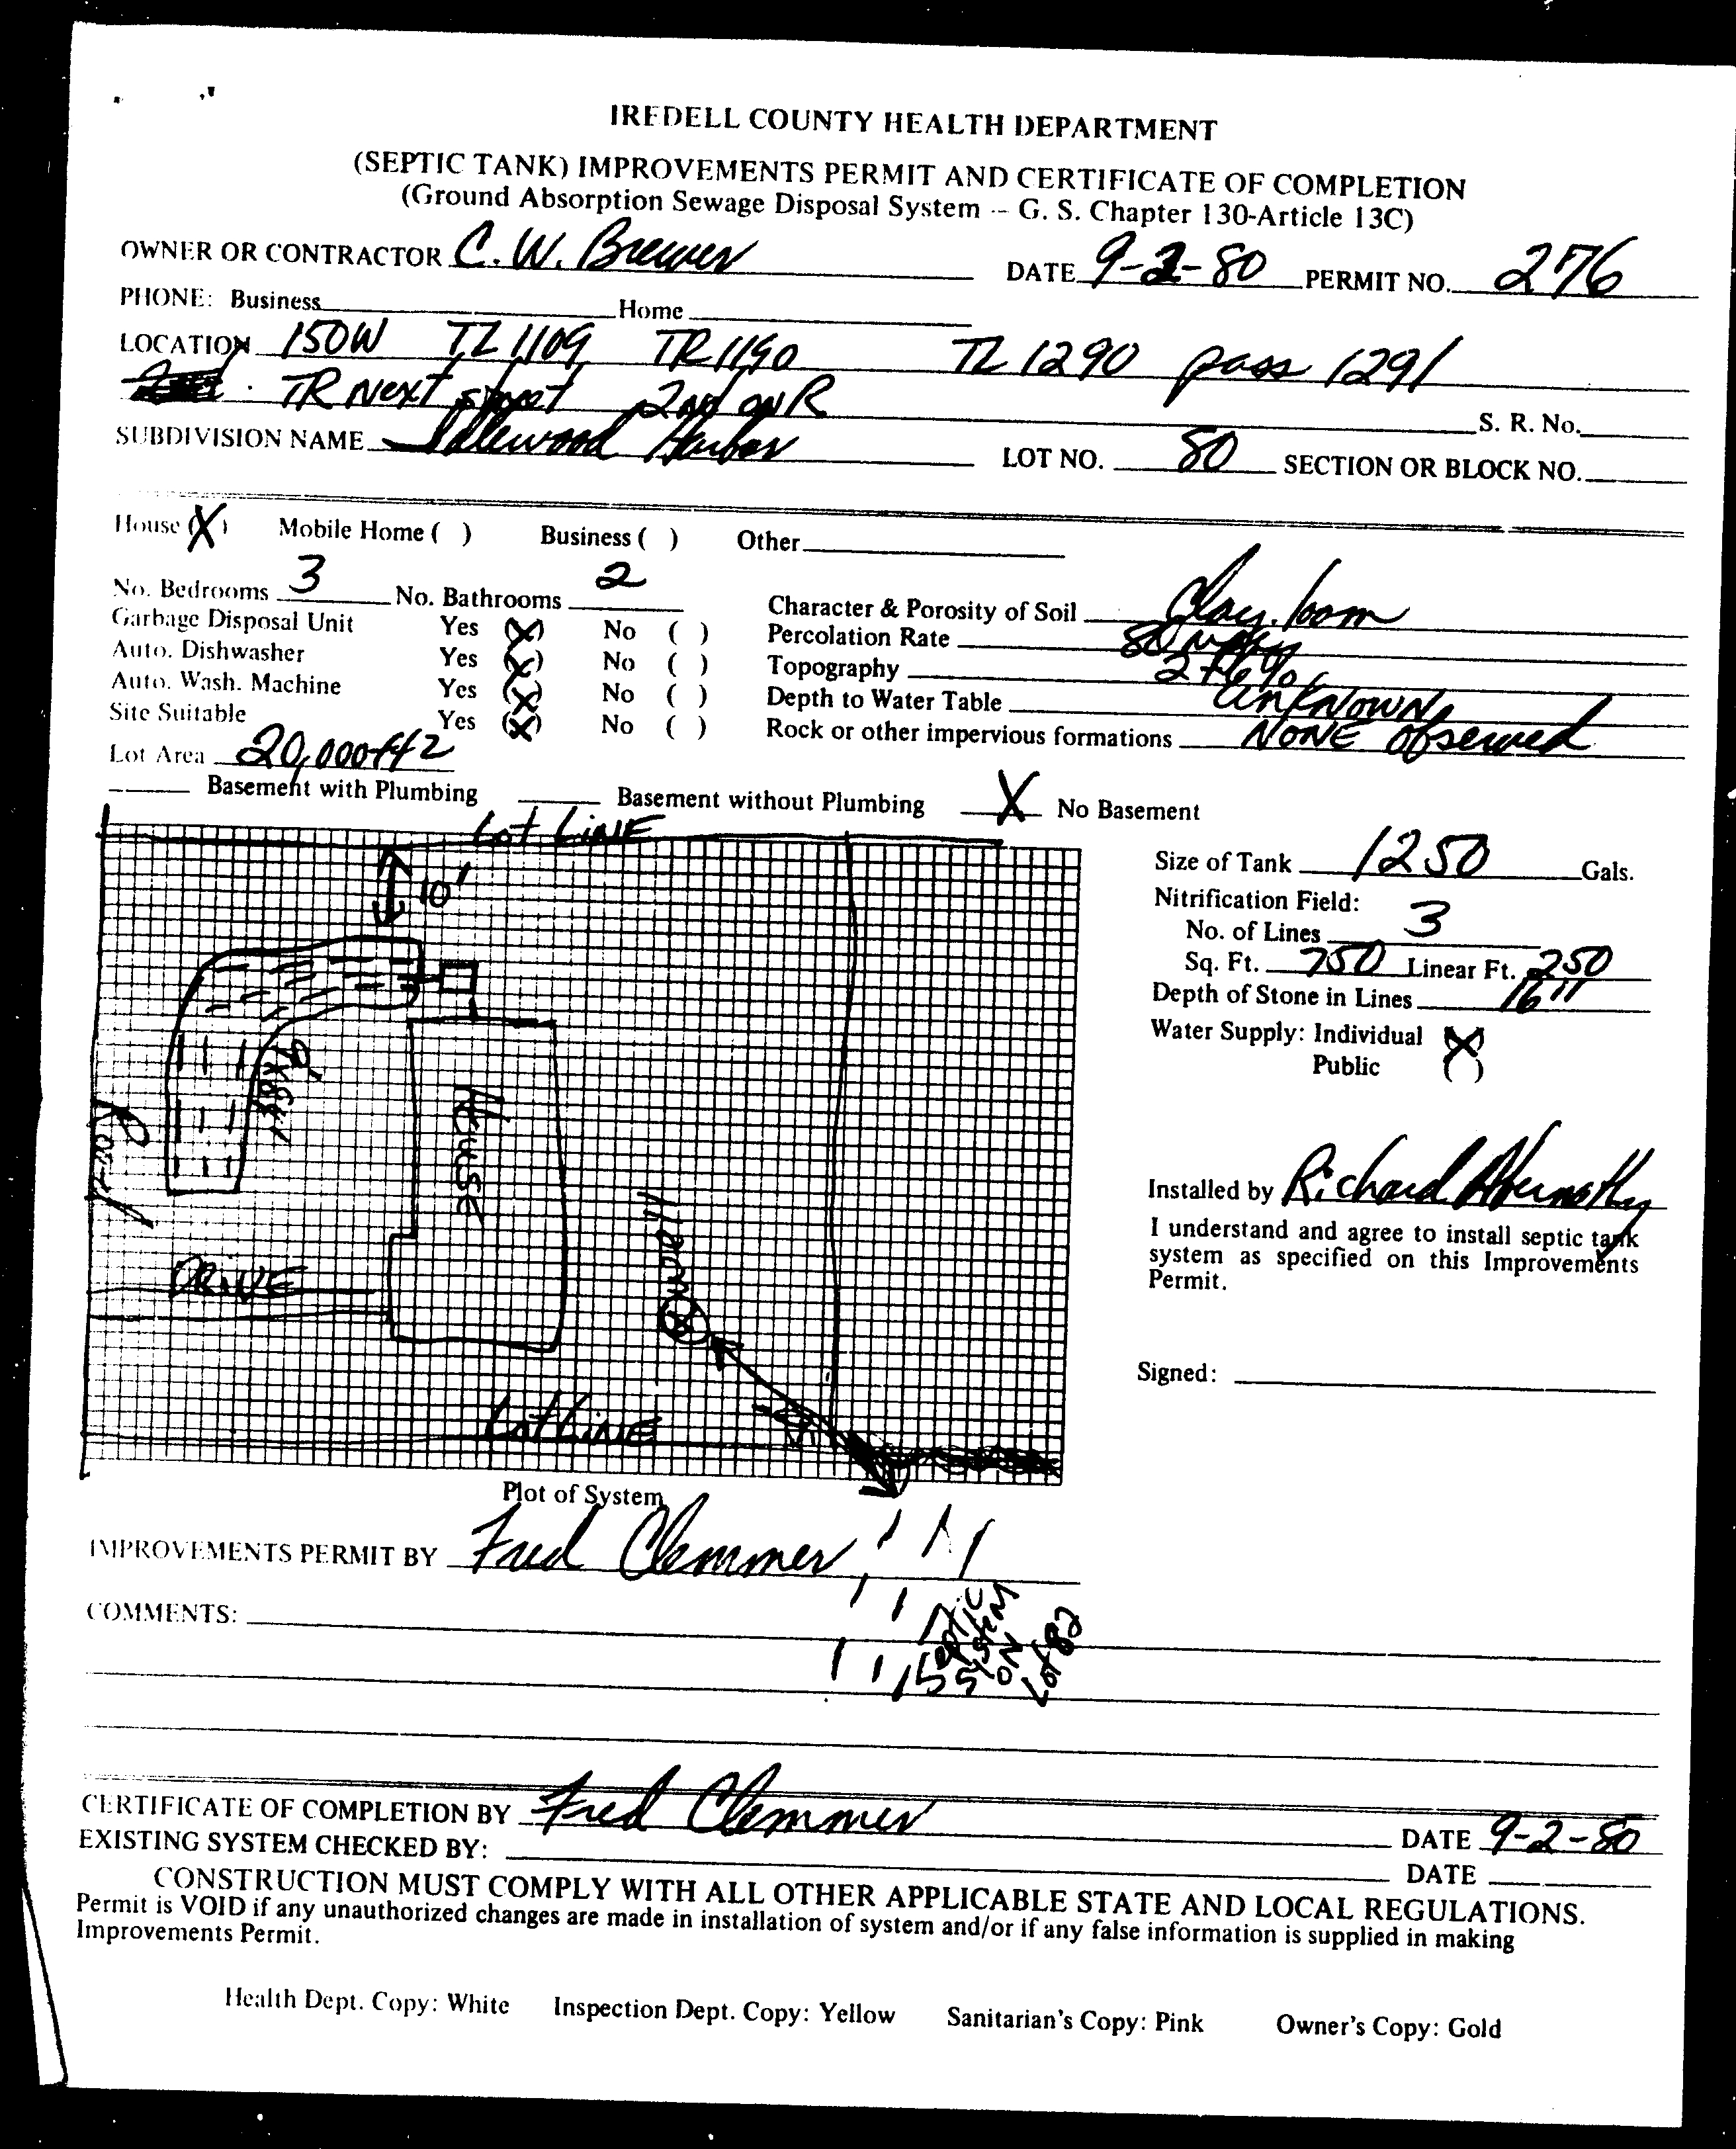 IREDELL COUNTY HEALTH DEPARTMENT
(SEPTIC TANK) IMPROVEMENTS PERMIT AND CERTIFICATE OF COMPLETION
(Ground Absorption Sewage Disposal System -- G. S. Chapter 130-Article 13C)
OWNER OR CONTRACTOR C. W. Brewer DATE 9-2-80 PERMIT NO. 276
PHONE: Business Home
LOCATION 150W TL 1109 TR 1190 TL 1290 pass 1291
TR Next street 2nd on R S. R. No.
SUBDIVISION NAME Idlewood Harbor LOT NO. 80 SECTION OR BLOCK NO.
House (X) Mobile Home ( ) Business ( ) Other
No. Bedrooms 3 No. Bathrooms 2 Character & Porosity of Soil Clay loam
Garbage Disposal Unit Yes (X) No ( ) Percolation Rate 80
Auto. Dishwasher Yes (X) No ( ) Topography
Auto. Wash. Machine Yes (X) No ( ) Depth to Water Table UNKNOWN
Site Suitable Yes (X) No ( ) Rock or other impervious formations NONE observed
Lot Area 20,000 ft2
Basement with Plumbing Basement without Plumbing X No Basement
Lot LINE
10'
HOUSE
Road
DRIVE
Lot LINE
Size of Tank 1250 Gals.
Nitrification Field:
No. of Lines 3
Sq. Ft. 750 Linear Ft. 250
Depth of Stone in Lines 16"
Water Supply: Individual (X)
Public ( )
Installed by Richard Abernathy
I understand and agree to install septic tank
system as specified on this Improvements
Permit.
Signed:
Plot of System
IMPROVEMENTS PERMIT BY Fred Clemmer
COMMENTS:
Septic
System
ON
Lot 82
CERTIFICATE OF COMPLETION BY Fred Clemmer DATE 9-2-80
EXISTING SYSTEM CHECKED BY: DATE
CONSTRUCTION MUST COMPLY WITH ALL OTHER APPLICABLE STATE AND LOCAL REGULATIONS.
Permit is VOID if any unauthorized changes are made in installation of system and/or if any false information is supplied in making
Improvements Permit.
Health Dept. Copy: White Inspection Dept. Copy: Yellow Sanitarian's Copy: Pink Owner's Copy: Gold